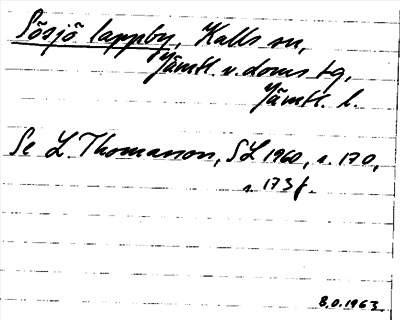 Sösjö lappby, Kalls sn,
Jämtl. v. doms tg,
Jämtl. l.
Se L. Thomasson, SL 1960, s. 170,
s. 173 f.
8.0.1963